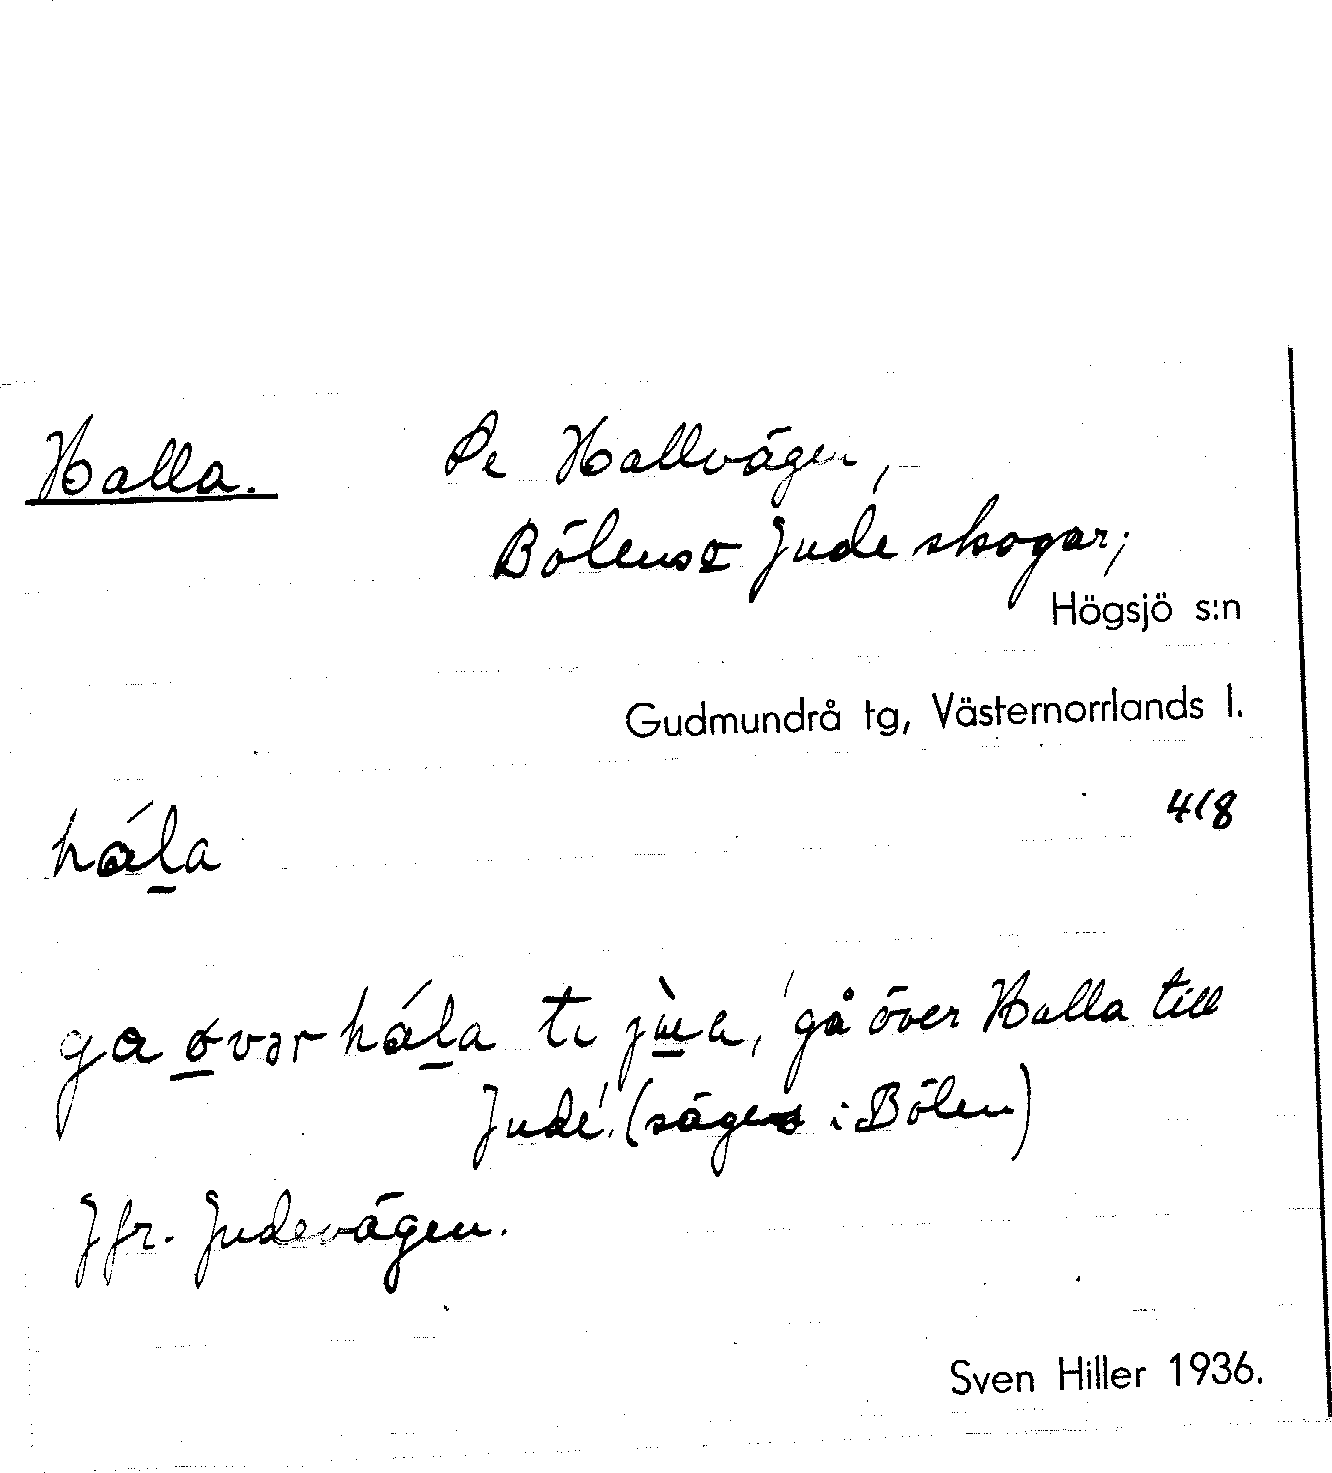 Halla. Se Hallvägen,
Bölens o Jude skogar;
Högsjö s:n
Gudmundrå tg, Västernorrlands l.
418
hála
ga ovər hála te 'gå över Halla till
Jude'. (säges i Bölen)
Jfr. Judevägen.
Sven Hiller 1936.